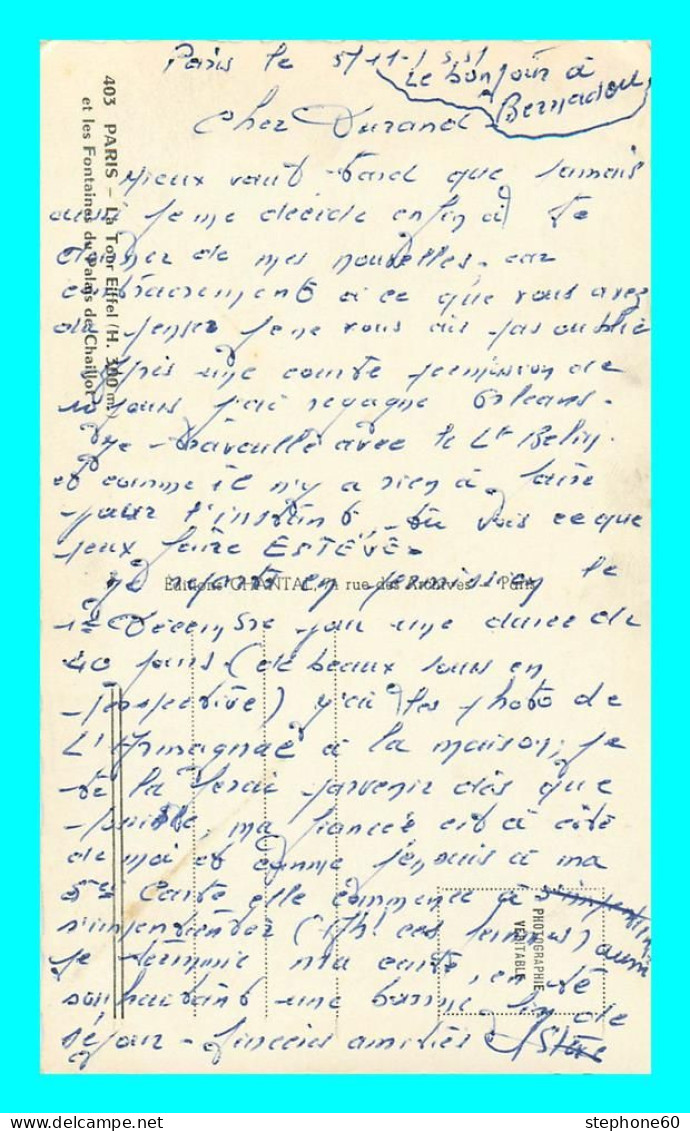 Paris le 5/11/551
Le bonjour à
Bernadou
Cher Durand
Mieux vaut tard que jamais
aussi je me décide enfin à te
donner de mes nouvelles. car
contrairement à ce que vous avez
dû penser je ne vous ais pas oublié
Après une courte permission de
10 jours j'ai regagné Orléans.
Je travaille avec le Lt Belin.
et comme il n'y a rien à faire
pour l'instant tu vois ce que
peux faire ESTÈVE.
Je repart en permission le
1er Décembre pour une durée de
40 jours (de beaux jours en
perspective) j'ai les photo de
L'Armagnac à la maison, je
te la ferai parvenir dès que
possible, ma fiancée est à côté
de moi et comme j'en suis à ma
5me carte elle commence à
s'impatienter (Ah! ces femmes) aussi
je termine ma carte, en te
souhaitant une bonne fin de
séjour - Sincères amitiés
403 PARIS - La Tour Eiffel (H. 300 m.)
et les Fontaines du Palais de Chaillot
Editions CHANTAL, rue des Archives - Paris
PHOTOGRAPHIE
VÉRITABLE
stephone60